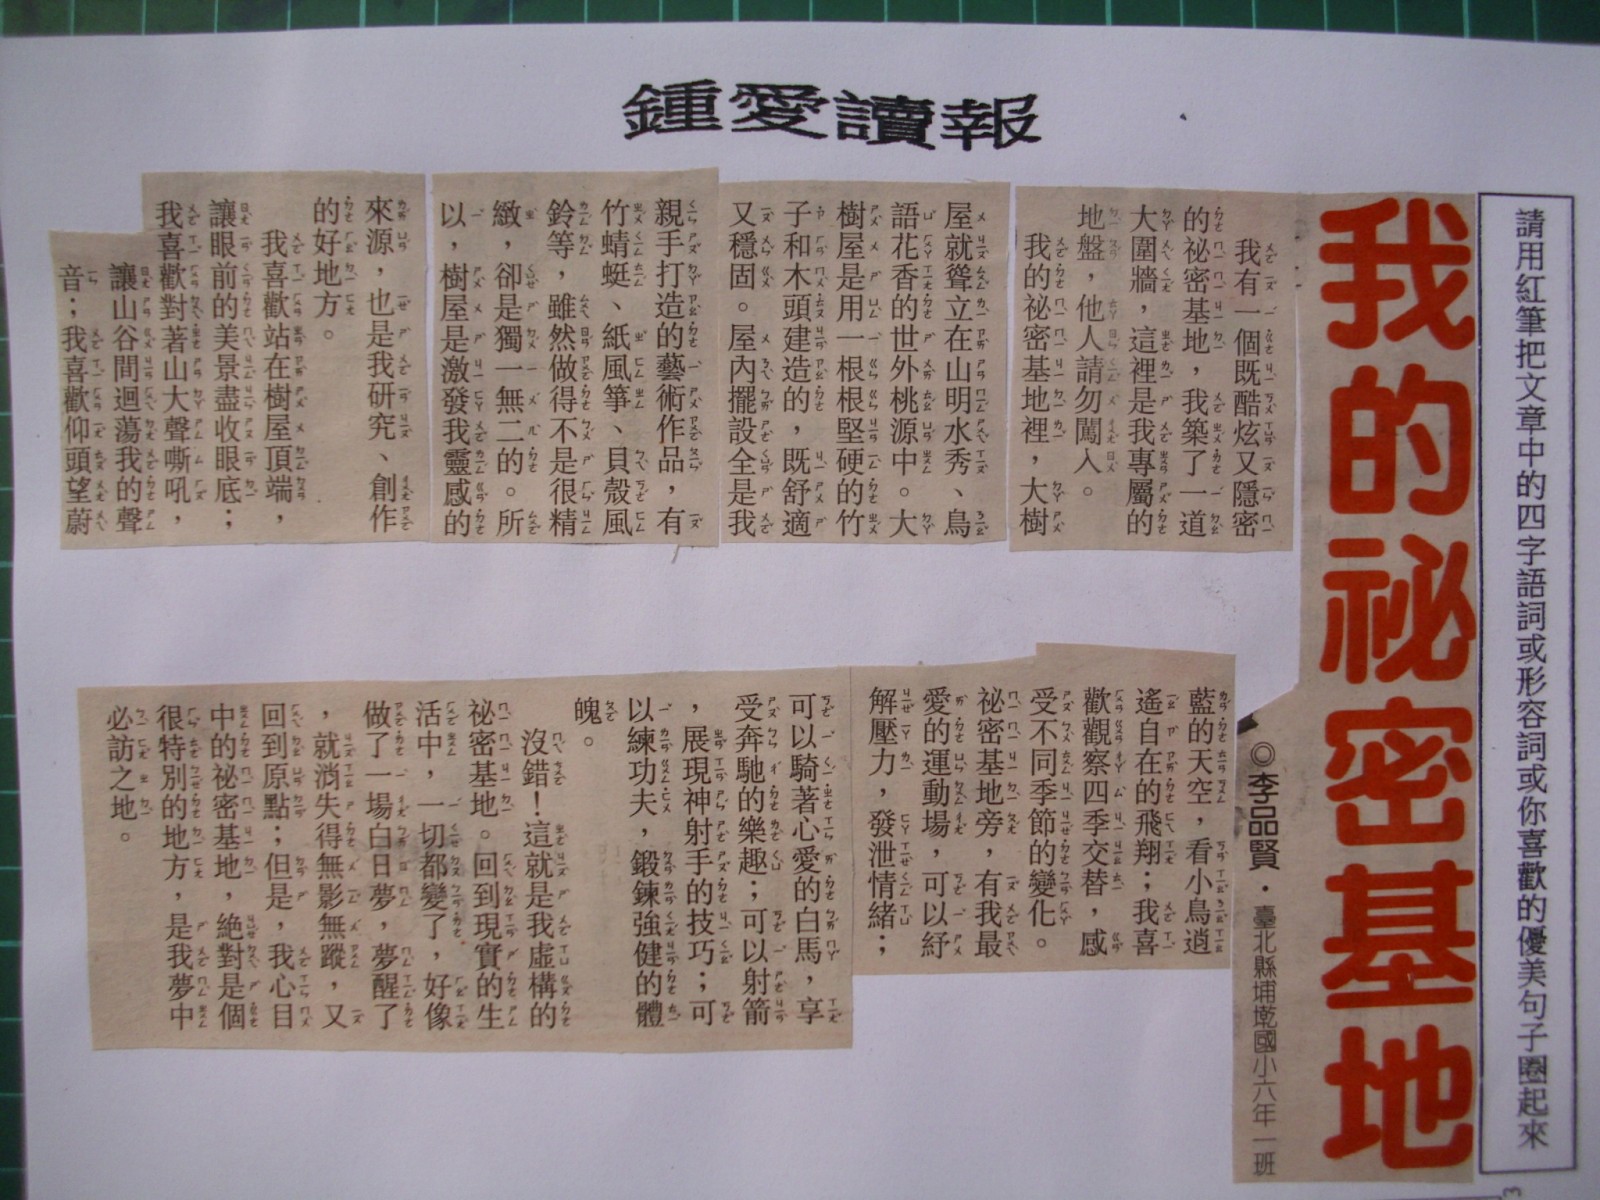 鍾愛讀報
請用紅筆把文章中的四字語詞或形容詞或你喜歡的優美句子圈起來
我的祕密基地
◎李品賢．臺北縣埔墘國小六年一班
我有一個既酷炫又隱密
的祕密基地，我築了一道
大圍牆，這裡是我專屬的
地盤，他人請勿闖入。
我的祕密基地裡，大樹
屋就聳立在山明水秀、鳥
語花香的世外桃源中。大
樹屋是用一根根堅硬的竹
子和木頭建造的，既舒適
又穩固。屋內擺設全是我
親手打造的藝術作品，有
竹蜻蜓、紙風箏、貝殼風
鈴等，雖然做得不是很精
緻，卻是獨一無二的。所
以，樹屋是激發我靈感的
來源，也是我研究、創作
的好地方。
我喜歡站在樹屋頂端，
讓眼前的美景盡收眼底；
我喜歡對著山大聲嘶吼，
讓山谷間迴蕩我的聲
音；我喜歡仰頭望蔚
藍的天空，看小鳥逍
遙自在的飛翔；我喜
歡觀察四季交替，感
受不同季節的變化。
祕密基地旁，有我最
愛的運動場，可以紓
解壓力，發泄情緒；
可以騎著心愛的白馬，享
受奔馳的樂趣；可以射箭
，展現神射手的技巧；可
以練功夫，鍛鍊強健的體
魄。
沒錯！這就是我虛構的
祕密基地。回到現實的生
活中，一切都變了，好像
做了一場白日夢，夢醒了
，就消失得無影無蹤，又
回到原點；但是，我心目
中的祕密基地，絕對是個
很特別的地方，是我夢中
必訪之地。
3